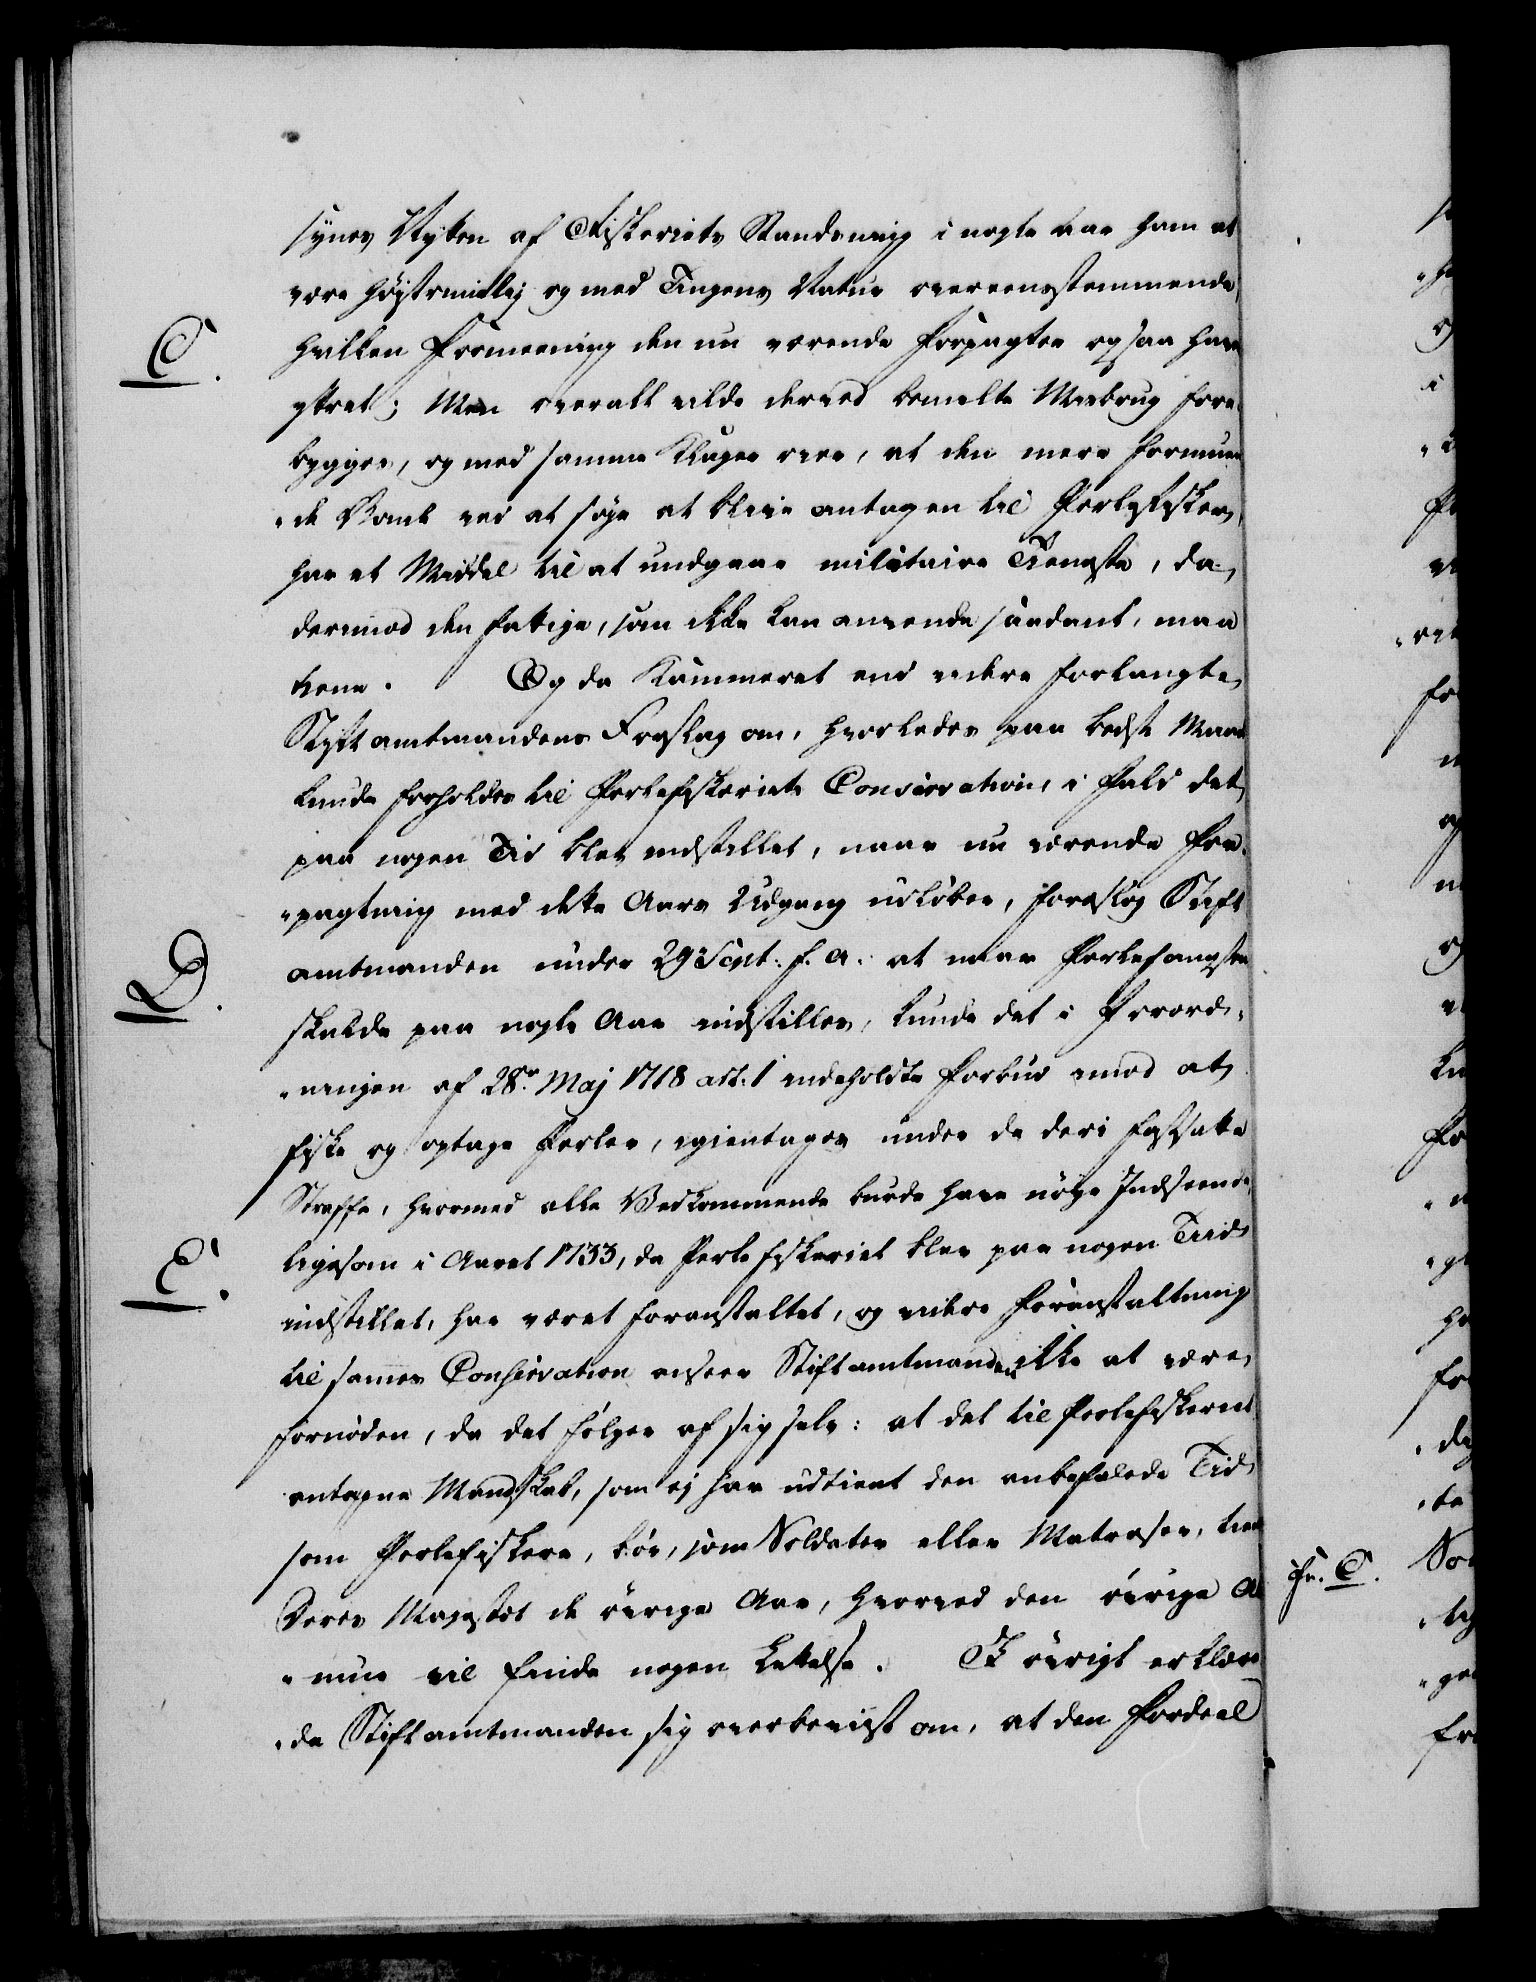 synes Nytten af Fiskeriets Standsning i nogle Aar ham at
være høystrimelig og med Tingens Natur overeensstemmende,
C.
hvilken Formeening den nu værende Forpagter ogsaa have
yttret; Men overalt vilde derved bemelte Misbrug fore-
bygges, og med samme Klager over, at den mere formuen
"de Bonde ved at søge at blive antagen til Perlefisker,
har et Middel til at undgaae militaire Tieneste, da
derimod den fattige, som ikke kan anvende saadant, maa
tiene. Og da Kammeret end videre forlangte
Stiftamtmandens Forslag om, hvorledes paa bedste Maade
kunde forholdes til Perlefiskeriets Conservation, i Fald det
paa nogen Tid blev indstillet, naar nu værende For-
"pagtning med dette Aars Udgang udløber, foreslog Stift
D.
amtmanden under 29 Sept: f. A: at naar Perlefangsten
skulde paa nogle Aar indstilles, kunde det i Forord-
"ningen af 28de Maj 1718 art: 1 indeholdte Forbud imod at
fiske og optage Perler, igientages under de deri fastsatte
Straffe, hvormed alle Vedkommende burde have nøye Indseende,
E.
ligesom i Aaret 1733, da Perlefiskeriet blev paa nogen Tiid
indstillet, har været foranstaltet, og videre Foranstaltning
til sammes Conservation anseer Stiftamtmanden ikke at være
fornøden, da det følger af sig selv: at det til Perlefiskeriet
antagne Mandskab, som ej har udtient den anbefalede Tid
som Perlefiskere, bør, som Soldater eller Matroser, tiene
Deres Majestet de øvrige Aar, hvorved den øvrige Al
"mue vil finde nogen Lettelse. I øvrigt erklære
"de Stiftamtmanden sig overbeviist om, at den Fordeel
Fr. C.